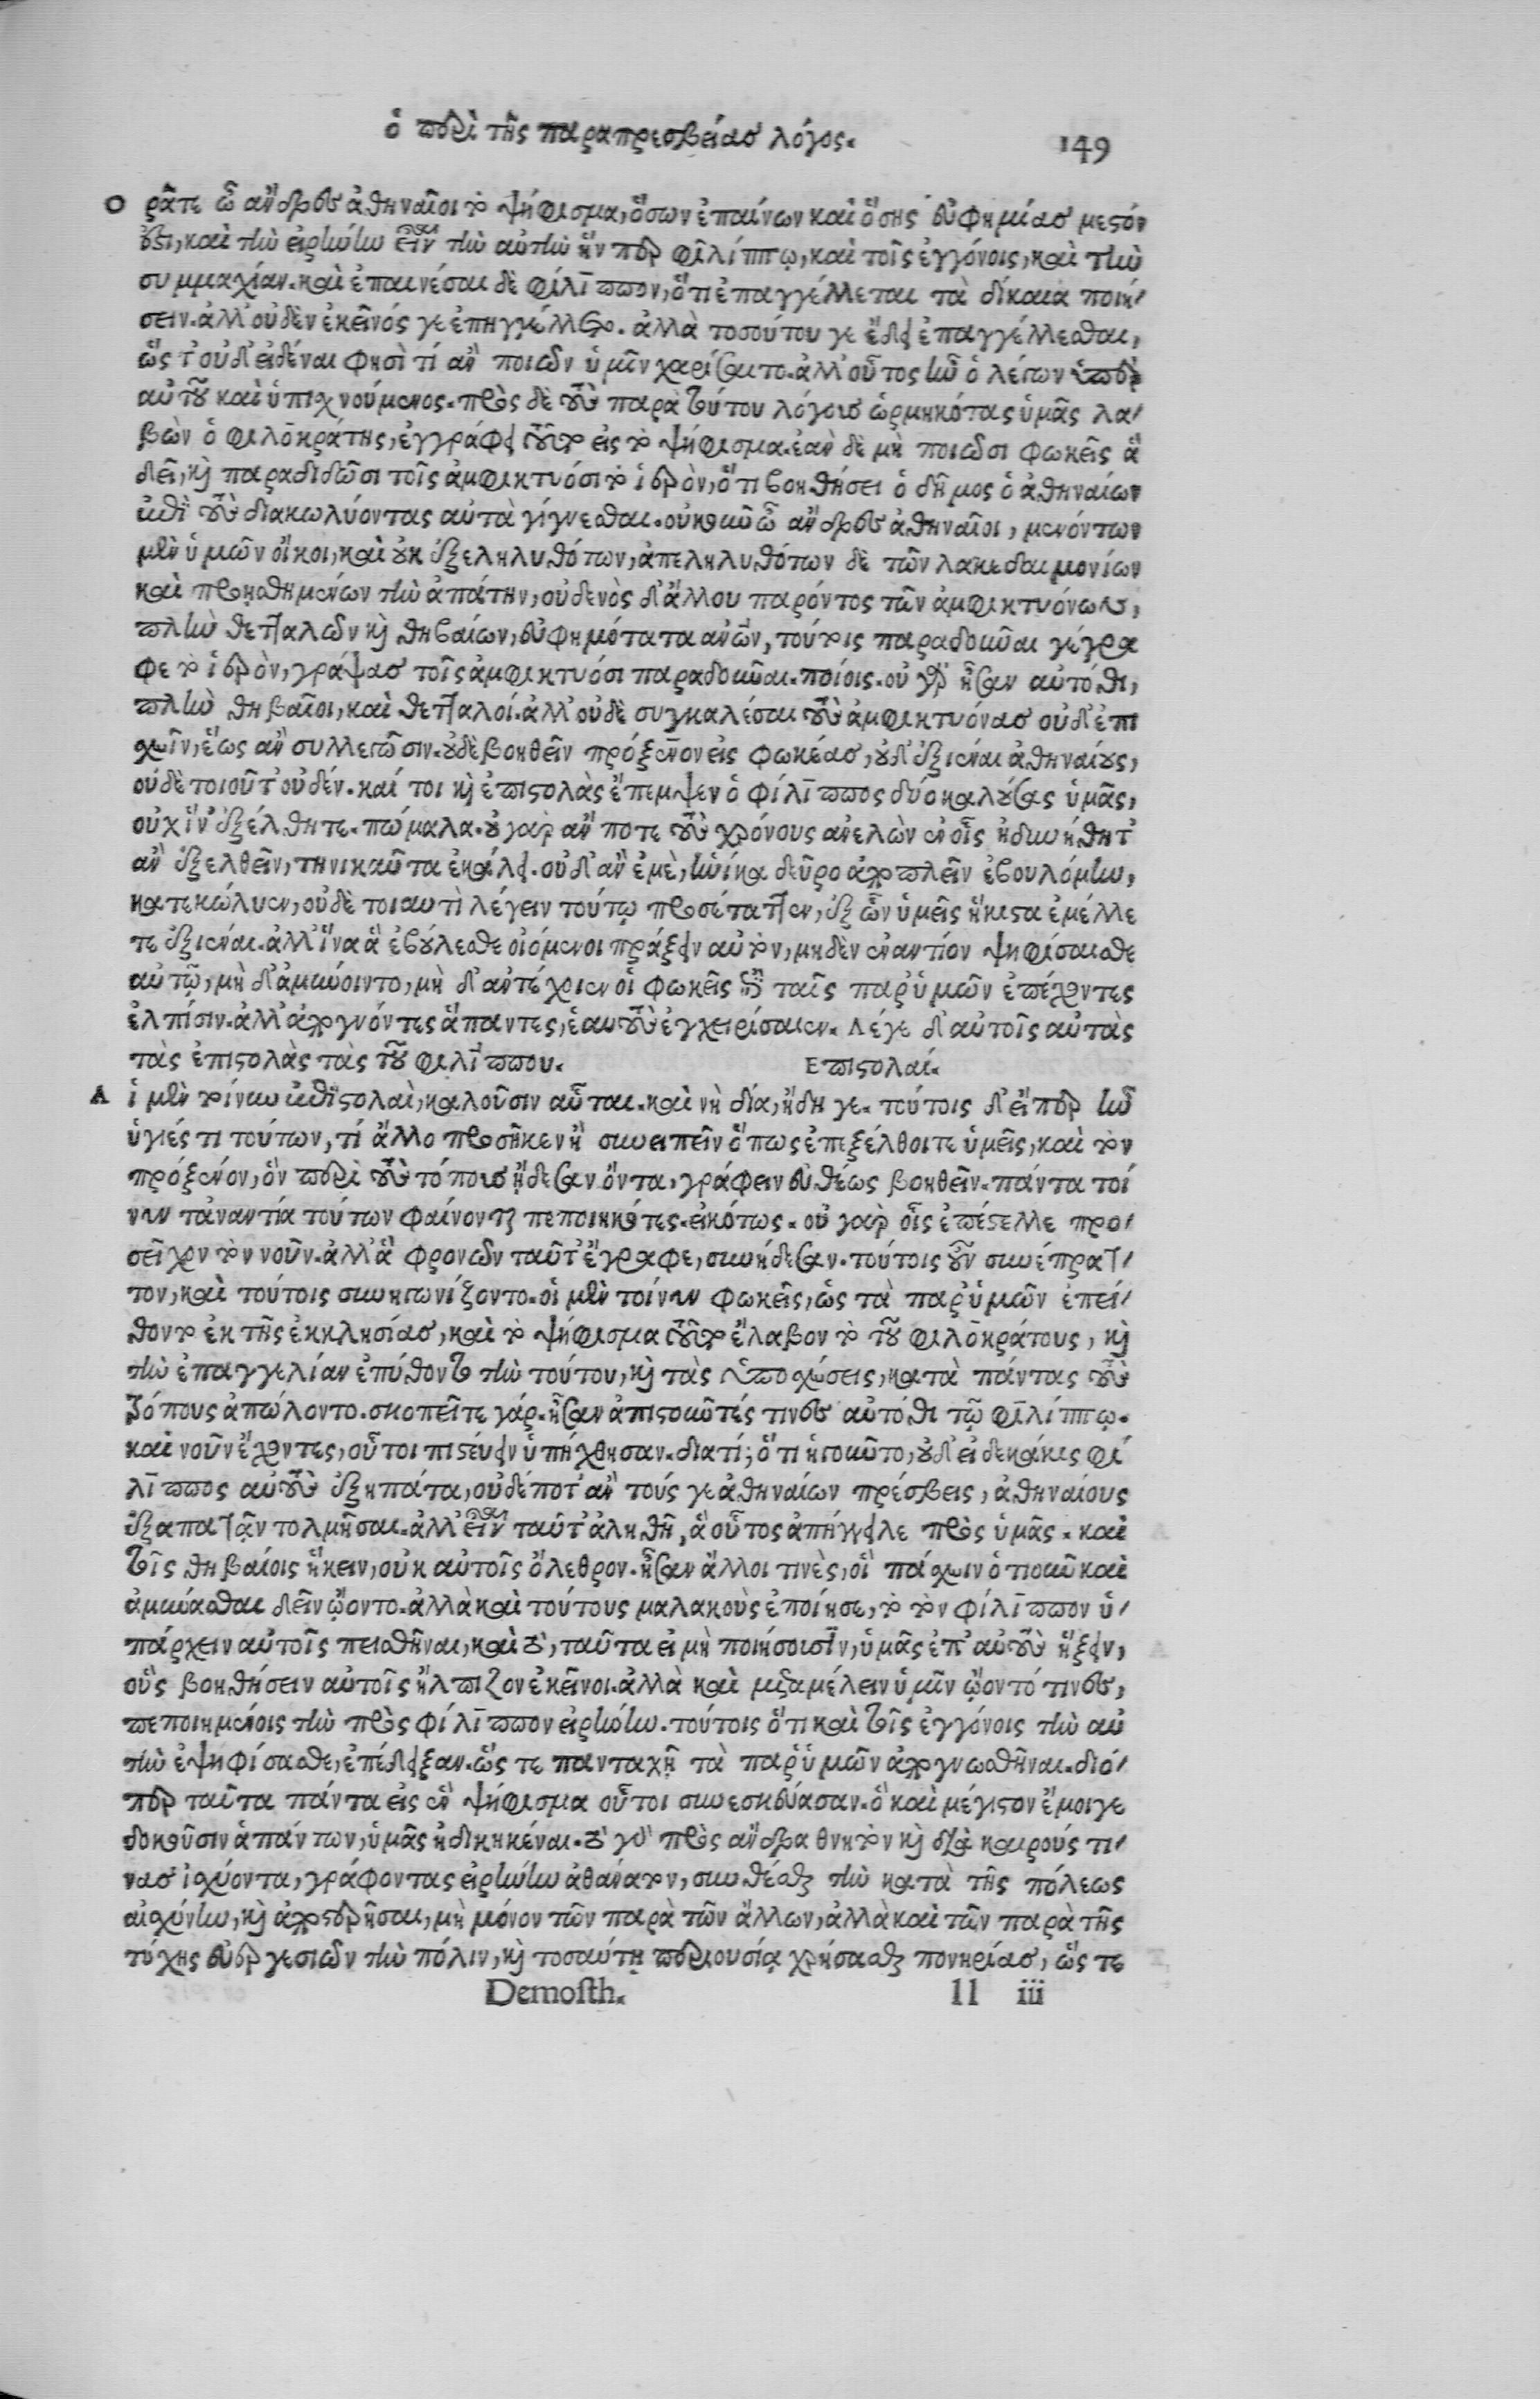 ὁ περὶ τῆς παραπρεσβείας λόγος. 149
Ορᾶτε ὦ ἄνδρες ἀθηναῖοι τὸ ψήφισμα, ὅσων ἐπαίνων καὶ ὅσης εὐφημίας μεστόν
ἐστι, καὶ τὴν εἰρήνην εἶναι τὴν αὐτὴν ἥν περ φιλίππῳ, καὶ τοῖς ἐγγόνοις, καὶ τὴν
συμμαχίαν. καὶ ἐπαινέσαι δὲ φίλιππον, ὅτι ἐπαγγέλλεται τὰ δίκαια ποιή-
σειν. ἀλλ' οὐδὲν ἐκεῖνός γε ἐπηγγέλλετο. ἀλλὰ τοσούτου γε ἔδει ἐπαγγέλλεσθαι,
ὥς τ' οὐδ' εἰδέναι φησὶ τί ἂν ποιῶν ὑμῖν χαρίσαιτο. ἀλλ' οὗτος ἦν ὁ λέγων ὑπὲρ
αὐτοῦ καὶ ὑπιχνούμενος. πρὸς δὲ τοὺς παρὰ τούτου λόγους ὡρμηκότας ὑμᾶς λα-
βὼν ὁ φιλοκράτης, ἐγγράφει τοῦτο εἰς τὸ ψήφισμα. ἐὰν δὲ μὴ ποιῶσι φωκεῖς ἃ
δεῖ, καὶ παραδιδῶσι τοῖς ἀμφικτυόσι τὸ ἱερὸν, ὅτι βοηθήσει ὁ δῆμος ὁ ἀθηναίων
ἐπὶ τοὺς διακωλύοντας αὐτὰ γίγνεσθαι. οὐκοῦν ὦ ἄνδρες ἀθηναῖοι, μενόντων
μὲν ὑμῶν οἴκοι, καὶ οὐκ ἐξεληλυθότων, ἀπεληλυθότων δὲ τῶν λακεδαιμονίων
καὶ προῃσθημένων τὴν ἀπάτην, οὐδενὸς δ' ἄλλου παρόντος τῶν ἀμφικτυόνων,
πλὴν θετταλῶν καὶ θηβαίων, εὐφημότατα ἀνῶν, τούτοις παραδοῦναι γέγρα
φε τὸ ἱερὸν, γράψας τοῖς ἀμφικτυόσι παραδοῦναι. ποίοις. οὐ γὰρ ἦσαν αὐτόθι,
πλὴν θηβαῖοι, καὶ θετταλοί. ἀλλ' οὐδὲ συγκαλέσαι τοὺς ἀμφικτυόνας οὐδ' ἐπι
σχεῖν, ἕως ἂν συλλεγῶσιν. οὐδὲ βοηθεῖν πρόξενον εἰς φωκέας, οὐδ' ἐξιέναι ἀθηναίους,
οὐδὲ τοιοῦτ' οὐδέν. καί τοι καὶ ἐπιστολὰς ἔπεμψεν ὁ φίλιππος δύο καλούσας ὑμᾶς,
οὐχ ἵν' ἐξέλθητε. πώμαλα. οὐ γὰρ ἄν ποτε τοὺς χρόνους ἀνελὼν ἐν οἷς ἠδυνήθητ'
ἂν ἐξελθεῖν, τηνικαῦτα ἐκάλει. οὐδ' ἂν ἐμὲ, ἡνίκα δεῦρο ἀποπλεῖν ἐβουλόμην,
κατεκώλυεν, οὐδὲ τοιαυτὶ λέγειν τούτῳ προσέταττεν, ἐξ ὧν ὑμεῖς ἥκιστα ἐμέλλε
τε ἐξιέναι. ἀλλ' ἵνα ἃ ἐβούλεσθε οἰόμενοι πράξειν αὐτὸν, μηδὲν ἐναντίον ψηφίσαισθε
αὐτῷ, μὴ δ' ἀμύνοιντο, μὴ δ' ἀντέχοιεν οἱ φωκεῖς ἐπὶ ταῖς παρ' ὑμῶν ἐπέχοντες
ἐλπίσιν. ἀλλ' ἀπογνόντες ἅπαντες, ἑαυτοὺς ἐγχειρίσαιεν. Λέγε δ' αὐτοῖς αὐτὰς
τὰς ἐπιστολὰς τὰς τοῦ φιλίππου. Επιστολαί.
Αἱ μὲν τοίνυν ἐπιστολαὶ, καλοῦσιν αὗται. καὶ νὴ δία, ἤδη γε. τούτοις δ' εἴπερ ἦν
ὑγιές τι τούτων, τί ἄλλο προσῆκεν ἢ συνειπεῖν ὅπως ἐπεξέλθοιτε ὑμεῖς, καὶ τὸν
πρόξενον, ὃν περὶ τοὺς τόπους ᾔδεσαν ὄντα, γράφειν εὐθέως βοηθεῖν. πάντα τοί
νυν τἀναντία τούτων φαίνονται πεποιηκότες. εἰκότως. οὐ γὰρ οἷς ἐπέστελλε προ-
σεῖχον τὸν νοῦν. ἀλλ' ἃ φρονῶν ταῦτ' ἔγραφε, συνῄδεσαν. τούτοις οὖν συνέπρατ-
τον, καὶ τούτοις συνηγωνίζοντο. οἱ μὲν τοίνυν φωκεῖς, ὡς τὰ παρ' ὑμῶν ἐπύ-
θοντο ἐκ τῆς ἐκκλησίας, καὶ τὸ ψήφισμα τοῦτο ἔλαβον τὸ τοῦ φιλοκράτους, καὶ
τὴν ἐπαγγελίαν ἐπύθοντο τὴν τούτου, καὶ τὰς ὑποσχέσεις, κατὰ πάντας τοὺς
τρόπους ἀπώλοντο. σκοπεῖτε γάρ. ἦσαν ἀπιστοῦντές τινες αὐτόθι τῷ φιλίππῳ.
καὶ νοῦν ἔχοντες, οὗτοι πιστεύειν ὑπήχθησαν. διατί; ὅτι ἡγοῦντο, οὐδ' εἰ δεκάκις φί
λιππος αὐτοὺς ἐξηπάτα, οὐδέποτ' ἂν τούς γε ἀθηναίων πρέσβεις, ἀθηναίους
ἐξαπατᾷν τολμῆσαι. ἀλλ' εἶναι ταῦτ' ἀληθῆ, ἃ οὗτος ἀπήγγειλε πρὸς ὑμᾶς. καὶ
τοῖς θηβαίοις ἥκειν, οὐκ αὐτοῖς ὄλεθρον. ἦσαν ἄλλοι τινὲς, οἳ πάσχειν ὁτιοῦν καὶ
ἀμύνασθαι δεῖν ᾤοντο. ἀλλὰ καὶ τούτους μαλακοὺς ἐποίησε, τὸ τὸν φίλιππον ὑ-
πάρχειν αὐτοῖς πεισθῆναι, καὶ ὅτι, ταῦτα εἰ μὴ ποιήσουσιν, ὑμᾶς ἐπ' αὐτοὺς ἥξειν,
οὓς βοηθήσειν αὐτοῖς ἤλπιζον ἐκεῖνοι. ἀλλὰ καὶ μεταμέλειν ὑμῖν ᾤοντό τινες,
πεποιημένοις τὴν πρὸς φίλιππον εἰρήνην. τούτοις ὅτι καὶ τοῖς ἐγγόνοις τὴν αὐ
τὴν ἐψηφίσασθε, ἐπέδειξαν. ὥς τε πανταχῇ τὰ παρ' ὑμῶν ἀπογνωσθῆναι. διό-
περ ταῦτα πάντα εἰς ἓν ψήφισμα οὗτοι συνεσκεύασαν. ὃ καὶ μέγιστον ἔμοιγε
δοκοῦσιν ἁπάντων, ὑμᾶς ἠδικηκέναι. τὸ γὰρ πρὸς ἄνδρα θνητὸν καὶ διὰ καιρούς τι-
νας ἰσχύοντα, γράφοντας εἰρήνην ἀθάνατον, συνθέσθαι τὴν κατὰ τῆς πόλεως
αἰσχύνην, καὶ ἀποστερῆσαι, μὴ μόνον τῶν παρὰ τῶν ἄλλων, ἀλλὰ καὶ τῶν παρὰ τῆς
τύχης εὐεργεσιῶν τὴν πόλιν, καὶ τοσαύτῃ περιουσίᾳ χρήσασθαι πονηρίας, ὥς τε
Demosth. ll iii